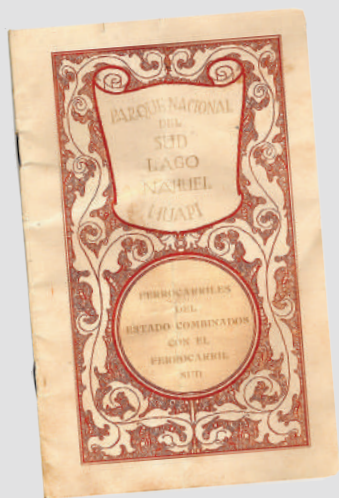 PARQUE NACIONAL
DEL
SUD
LAGO
NAHUEL
HUAPÍ
FERROCARRILES
DEL
ESTADO COMBINADOS
CON EL
FERROCARRIL
SUD